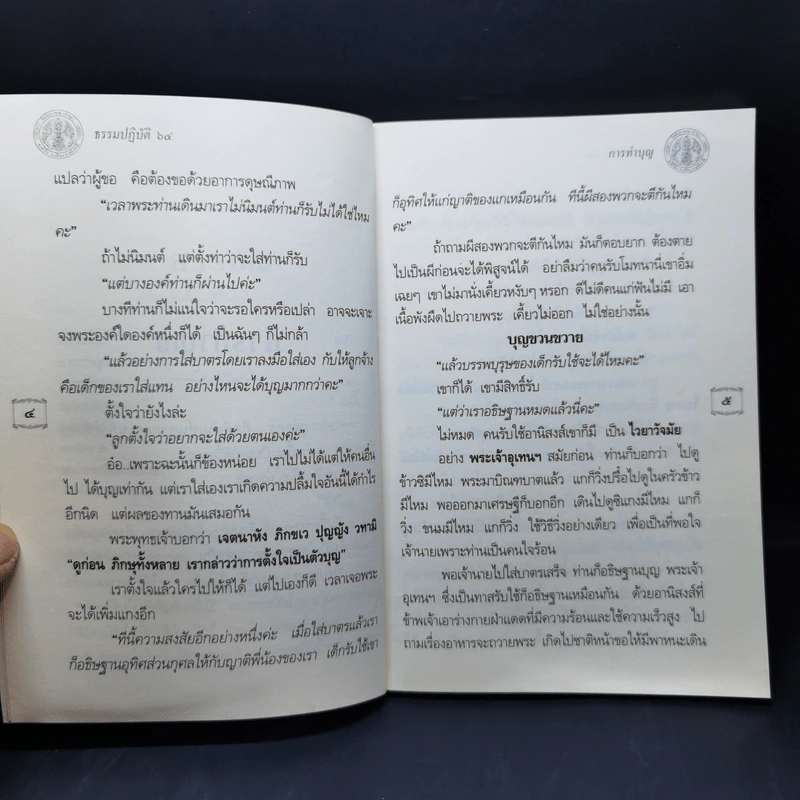 ธรรมปฏิบัติ ๖๔
แปลว่าผู้ขอ คือต้องขอด้วยอาการดุษณีภาพ
"เวลาพระท่านเดินมาเราไม่นิมนต์ท่านก็รับไม่ได้ใช่ไหม
คะ"
ถ้าไม่นิมนต์ แต่ตั้งท่าว่าจะใส่ท่านก็รับ
"แต่บางองค์ท่านก็ผ่านไปค่ะ"
บางทีท่านก็ไม่แน่ใจว่าจะรอใครหรือเปล่า อาจจะเจาะ
จงพระองค์ใดองค์หนึ่งก็ได้ เป็นฉันๆ ก็ไม่กล้า
"แล้วอย่างการใส่บาตรโดยเราลงมือใส่เอง กับให้ลูกจ้าง
คือเด็กของเราใส่แทน อย่างไหนจะได้บุญมากกว่าคะ"
ตั้งใจว่ายังไงล่ะ
"ลูกตั้งใจว่าอยากจะใส่ด้วยตนเองค่ะ"
อ๋อ..เพราะฉะนั้นก็ข้องหน่อย เราไปไม่ได้แต่ให้คนอื่น
ไป ได้บุญเท่ากัน แต่เราใส่เองเราเกิดความปลื้มใจอันนี้ได้กำไร
อีกนิด แต่ผลของทานมันเสมอกัน
พระพุทธเจ้าบอกว่า เจตนาหัง ภิกขเว ปุญญัง วทามิ
"ดูก่อน ภิกษุทั้งหลาย เรากล่าวว่าการตั้งใจเป็นตัวบุญ"
เราตั้งใจแล้วใครไปให้ก็ได้ แต่ไปเองก็ดี เวลาเจอพระ
จะได้เพิ่มแกงอีก
"ทีนี้ความสงสัยอีกอย่างหนึ่งค่ะ เมื่อใส่บาตรแล้วเรา
ก็อธิษฐานอุทิศส่วนกุศลให้กับญาติพี่น้องของเรา เด็กรับใช้เขา
๔
การทำบุญ
ก็อุทิศให้แก่ญาติของแกเหมือนกัน ทีนี้ผีสองพวกจะตีกันไหม
คะ"
ถ้าถามผีสองพวกจะตีกันไหม มันก็ตอบยาก ต้องตาย
ไปเป็นผีก่อนจะได้พิสูจน์ได้ อย่าลืมว่าคนรับโมทนานี่เขาอิ่ม
เฉยๆ เขาไม่มานั่งเคี้ยวหงับๆ หรอก ดีไม่ดีคนแก่ฟันไม่มี เอา
เนื้อพังผืดไปถวายพระ เคี้ยวไม่ออก ไม่ใช่อย่างนั้น
บุญขวนขวาย
"แล้วบรรพบุรุษของเด็กรับใช้จะได้ไหมคะ"
เขาก็ได้ เขามีสิทธิ์รับ
"แต่ว่าเราอธิษฐานหมดแล้วนี่คะ"
ไม่หมด คนรับใช้อานิสงส์เขาก็มี เป็น ไวยาวัจมัย
อย่าง พระเจ้าอุเทนฯ สมัยก่อน ท่านก็บอกว่า ไปดู
ข้าวซิมีไหม พระมาบิณฑบาตแล้ว แกก็วิ่งปรื๋อไปดูในครัวข้าว
มีไหม พอออกมาเศรษฐีก็บอกอีก เดินไปดูซิแกงมีไหม แกก็
วิ่ง ขนมมีไหม แกก็วิ่ง ใช้วิธีวิ่งอย่างเดียว เพื่อเป็นที่พอใจ
เจ้านายเพราะท่านเป็นคนใจร้อน
พอเจ้านายไปใส่บาตรเสร็จ ท่านก็อธิษฐานบุญ พระเจ้า
อุเทนฯ ซึ่งเป็นทาสรับใช้ก็อธิษฐานเหมือนกัน ด้วยอานิสงส์ที่
ข้าพเจ้าเอาร่างกายฝ่าแดดที่มีความร้อนและใช้ความเร็วสูง ไป
ถามเรื่องอาหารจะถวายพระ เกิดไปชาติหน้าขอให้มีพาหนะเดิน
๕